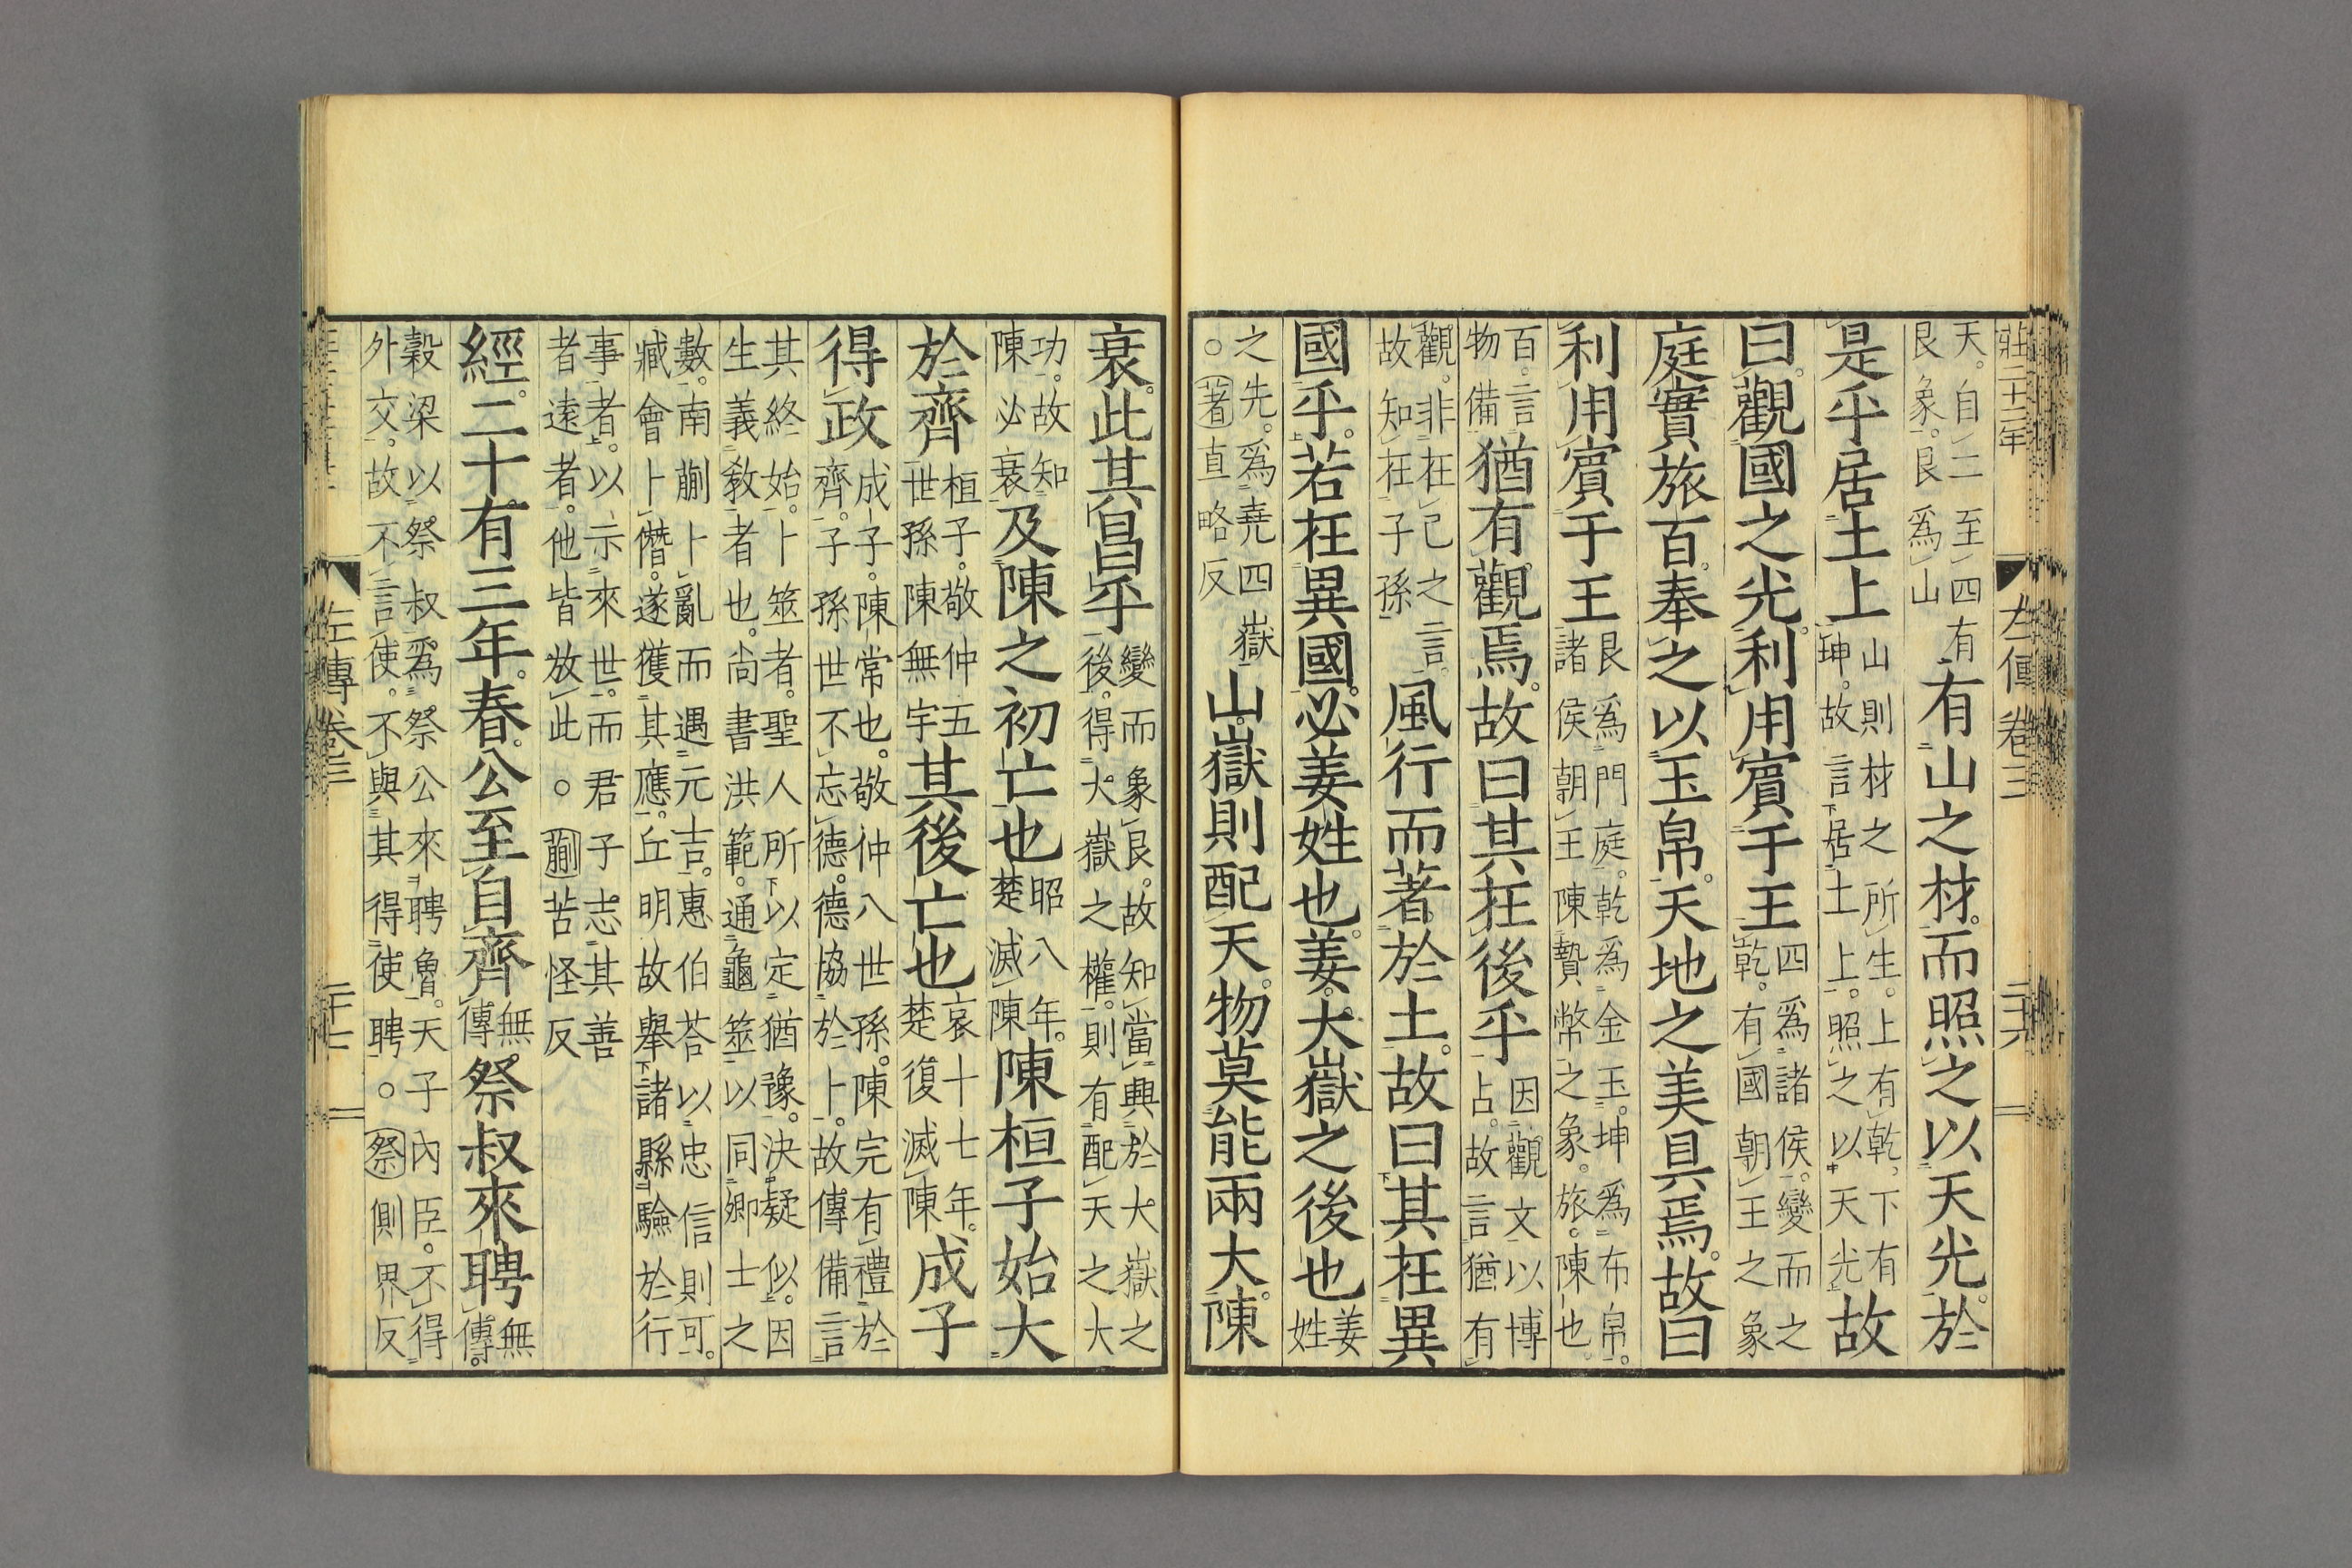 莊二十二年　左傳卷三　二十六
天。自二至四有艮象。艮爲山有山之材。而照之以天光。於
是乎居土上山則材之所生。上有乾。下有坤。故言居土上。照之以天光故
曰。觀國之光。利用賓于王四爲諸侯。變而之乾。有國朝王之象
庭實旅百。奉之以玉帛。天地之美具焉。故曰
利用賓于王艮爲門庭。乾爲金玉。坤爲布帛。諸侯朝王陳贄幣之象。旅。陳也。
百。言物備猶有觀焉。故曰其在後乎因觀文以博占。故言猶有
觀。非在己之言。故知在子孫風行而著於土。故曰其在異
國乎。若在異國。必姜姓也。姜。大嶽之後也姜姓
之先。爲堯四嶽○著直略反山嶽則配天。物莫能兩大。陳
衰。此其昌乎變而象艮。故知當興於大嶽之後。得大嶽之權。則有配天之大
功。故知陳必衰及陳之初亡也昭八年。楚滅陳陳桓子始大
於齊桓子。敬仲五世孫陳無宇其後亡也哀十七年。楚復滅陳成子
得政成子。陳常也。敬仲八世孫。陳完有禮於齊。子孫世不忘德。德協於卜。故傳備言
其終始。卜筮者。聖人所以定猶豫。決疑似。因生義教者也。尚書洪範。通龜筮以同卿士之
數。南蒯卜亂而遇元吉。惠伯荅以忠信則可。臧會卜僭。遂獲其應。丘明故舉諸縣驗於行
事者。以示來世。而君子志其善者遠者。他皆放此。○蒯苦怪反
經。二十有三年。春。公至自齊無傳祭叔來聘無傳。
穀梁以祭叔爲祭公來聘魯。天子內臣。不得外交。故不言使。不與其得使聘。○祭側界反
左傳卷三　二十七